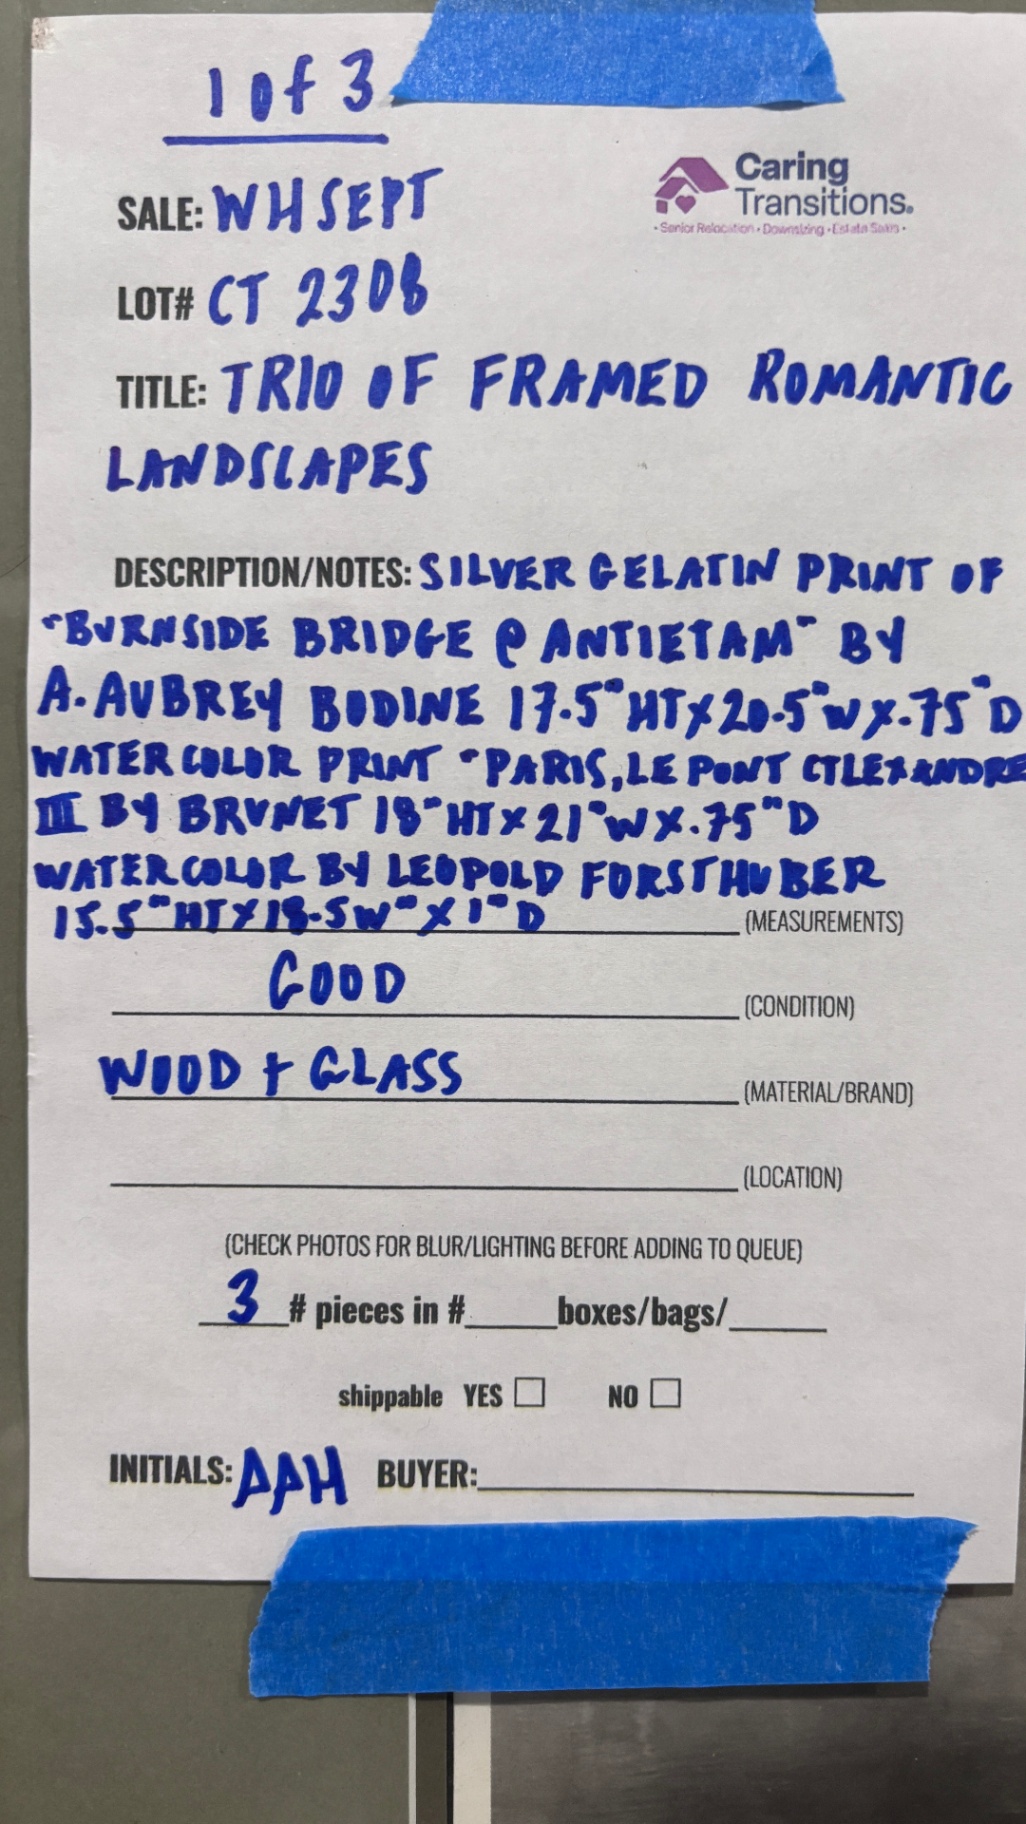 1 of 3
Caring
Transitions.
• Senior Relocation • Downsizing • Estate Sales •
SALE: WHSEPT
LOT# CT 2308
TITLE: TRIO OF FRAMED ROMANTIC
LANDSCAPES
DESCRIPTION/NOTES: SILVER GELATIN PRINT OF
"BURNSIDE BRIDGE @ ANTIETAM" BY
A. AUBREY BODINE 17.5"HTX20.5"WX.75"D
WATERCOLOR PRINT "PARIS, LE PONT CTLEXANDRE
III BY BRUNET 18"HTX21"WX.75"D
WATERCOLOR BY LEOPOLD FORSTHUBER
15.5"HTX18.5W"X1"D (MEASUREMENTS)
GOOD (CONDITION)
WOOD + GLASS (MATERIAL/BRAND)
(LOCATION)
(CHECK PHOTOS FOR BLUR/LIGHTING BEFORE ADDING TO QUEUE)
3 # pieces in # boxes/bags/
shippable YES NO
INITIALS: AAH BUYER: